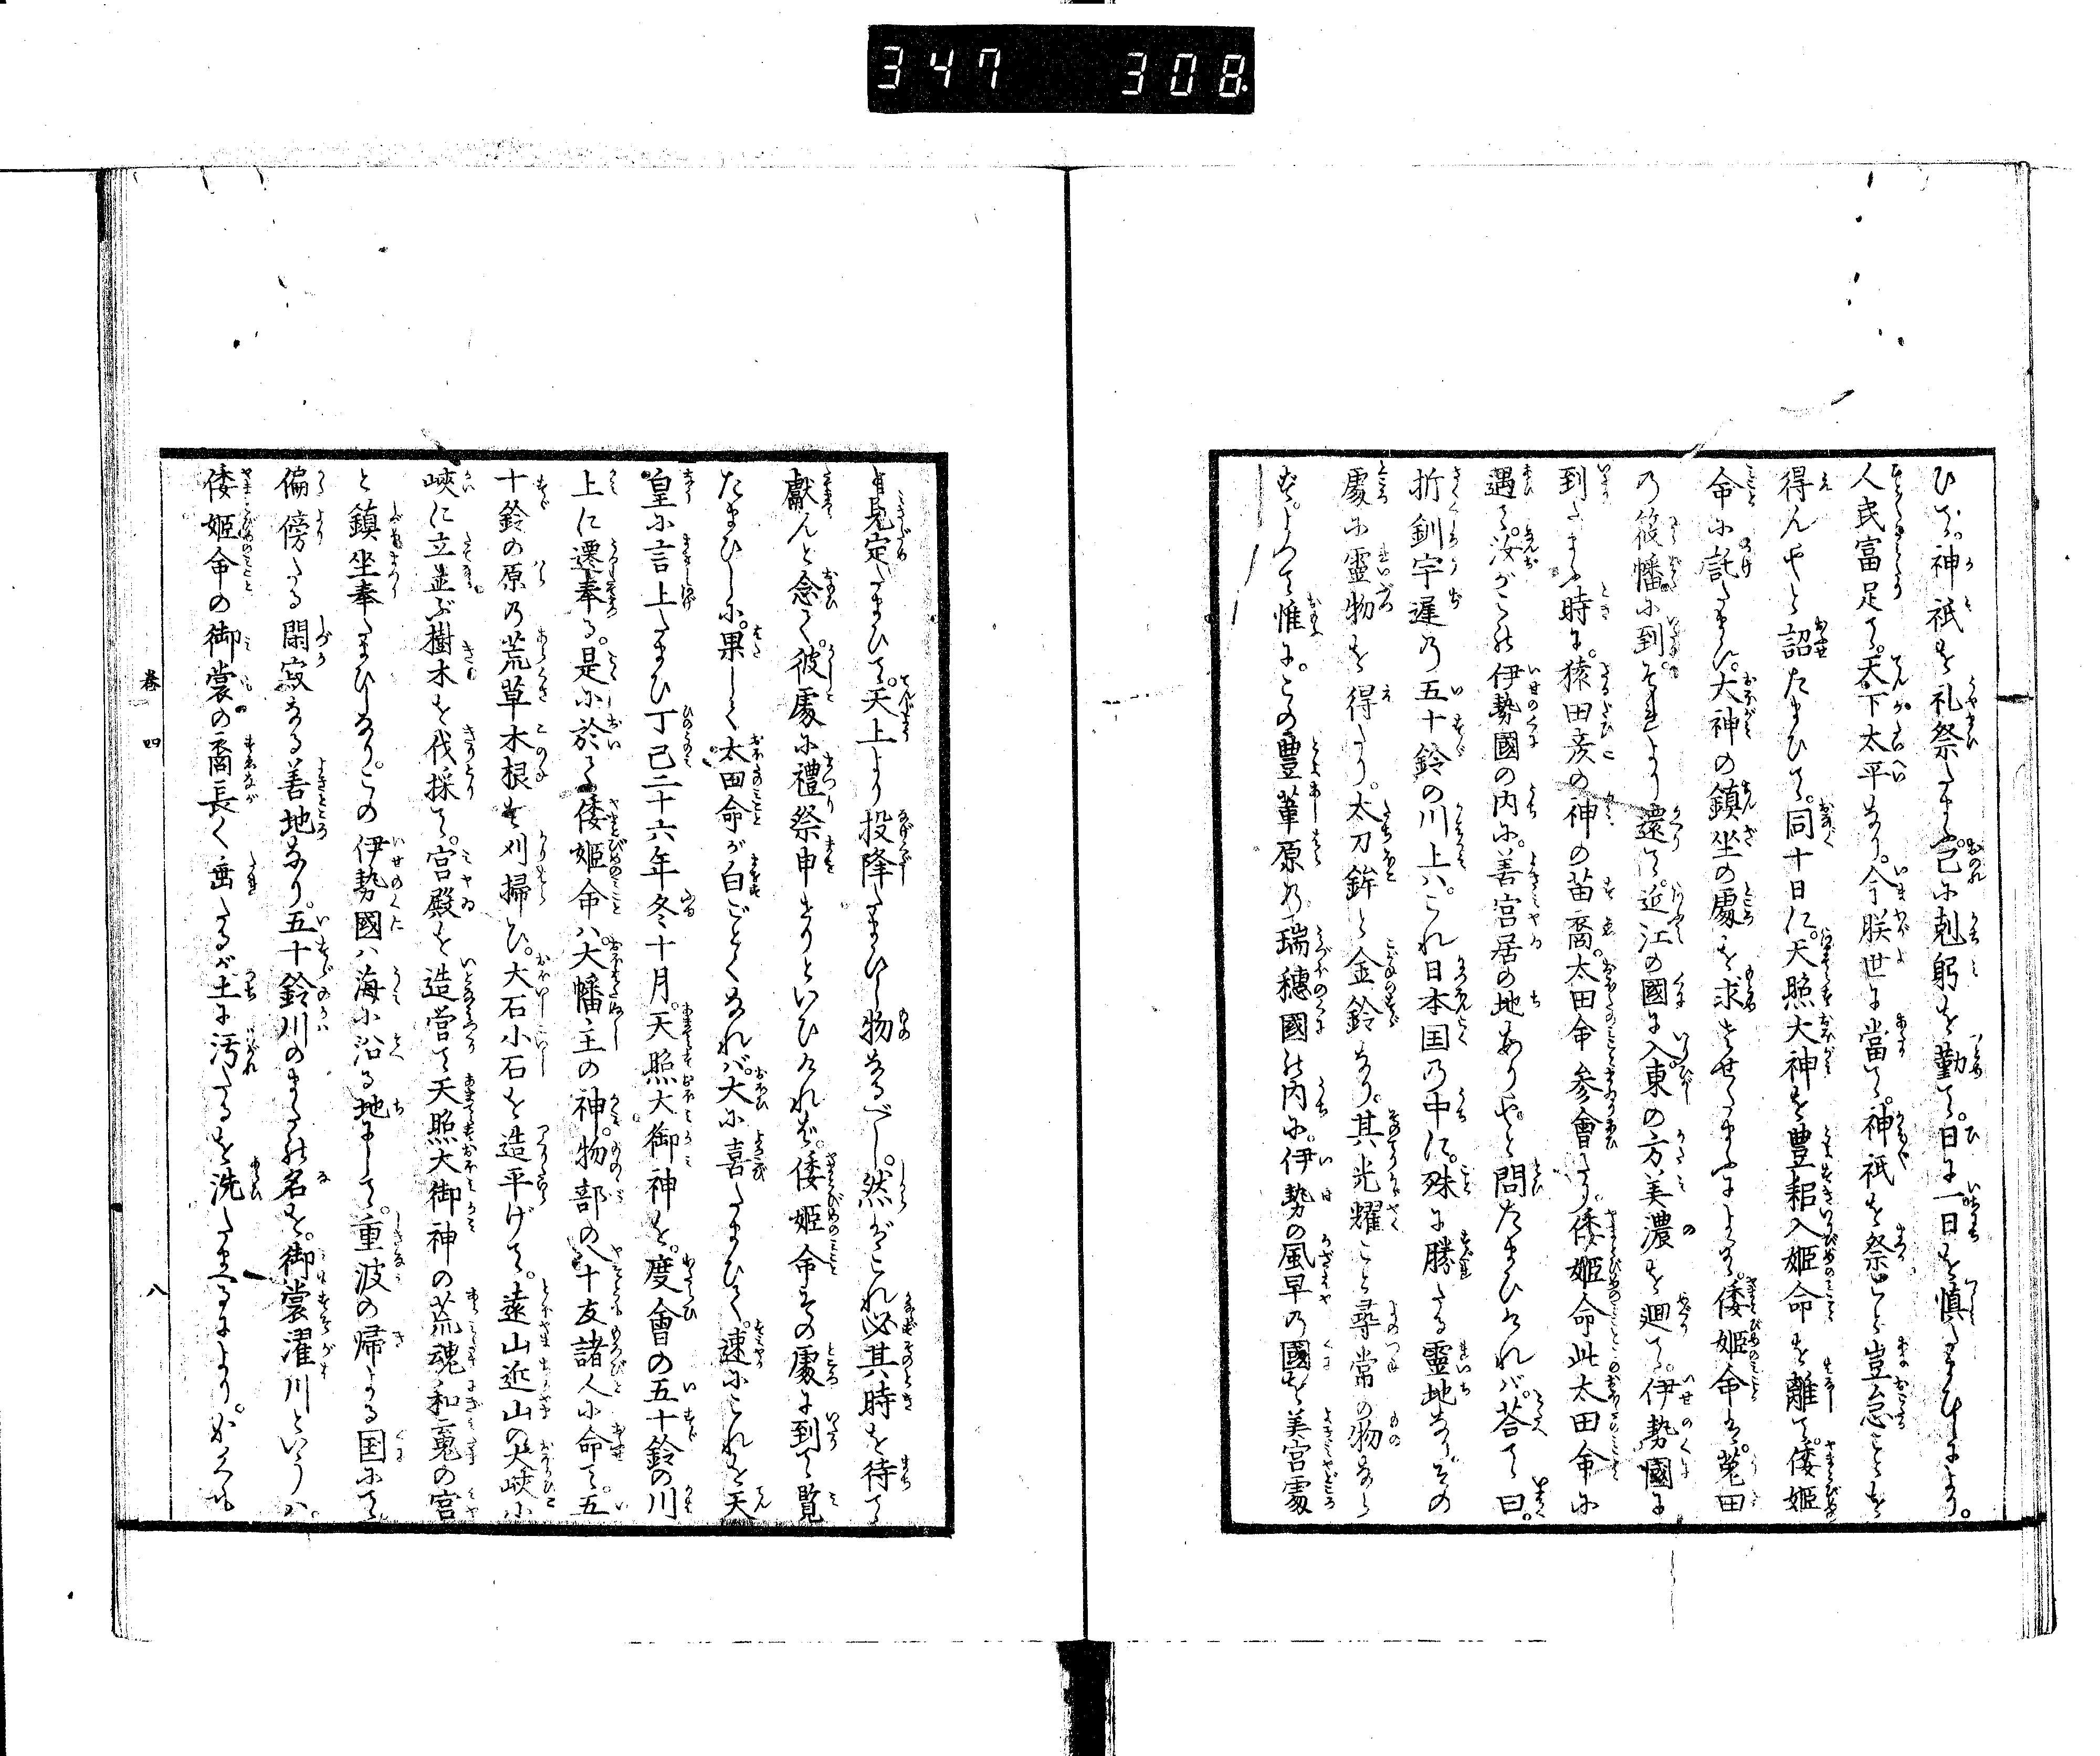 347 308
ひか。神祇を礼祭たまふ。己に剋躬を勤て。日に一日を慎たまひしにより。
人民富足て。天下太平なり。今朕世に當て。神祇を祭こと豈怠ことを
得んやと詔たまひて。同十日に。天照大神を豊耜入姫命を離て。倭姫
命に託たまふ。大神の鎮坐の處を求させたまふによりて。倭姫命は。菟田
乃筱幡に到。それより還て。近江の國に入。東の方。美濃を廻て。伊勢國に
到たまふ時に。猿田彦の神の苗裔。太田命参會たり。倭姫命此太田命に
遇て。汝がこの伊勢國の内に。善宮居の地ありやと問たまひければ。荅て曰。
折釧宇遅乃五十鈴の川上ハ。これ日本国乃中に。殊に勝たる靈地なり。その
處に靈物を得たり。太刀鉾と金鈴なり。其光耀こと尋常の物なら
ず。よつて惟に。この豊葦原乃瑞穗國の内に。伊勢の風早乃國を美宮處
と見定たまひて。天上より投降たまひし物なるべし。然ばこれ必其時を待て
獻んと念て。彼處に禮祭申せりといひければ。倭姫命その處に到て覧
たまひしに。果して。太田命が白ごとくなれバ。大に喜たまひて。速にこれを天
皇に言上たまひ丁己二十六年冬十月。天照大御神を。度會の五十鈴の川
上に遷奉る。是に於て倭姫命ハ。大幡主の神。物部の八十友諸人に命て。五
十鈴の原乃荒草木根を刈掃ひ。大石小石を造平げて。遠山近山の大峽小
峽に立並ぶ樹木を伐採て。宮殿を造営て天照大御神の荒魂和魂の宮
と鎮坐奉たまひしなり。この伊勢國ハ海に沿る地にして。重波の帰よる国にて。
偏傍たる閑寂なる善地なり。五十鈴川のまたの名を。御裳濯川といふハ。
倭姫命の御裳の裔長く垂たるが土に汚たるを洗たまへるによりて。
巻四
八